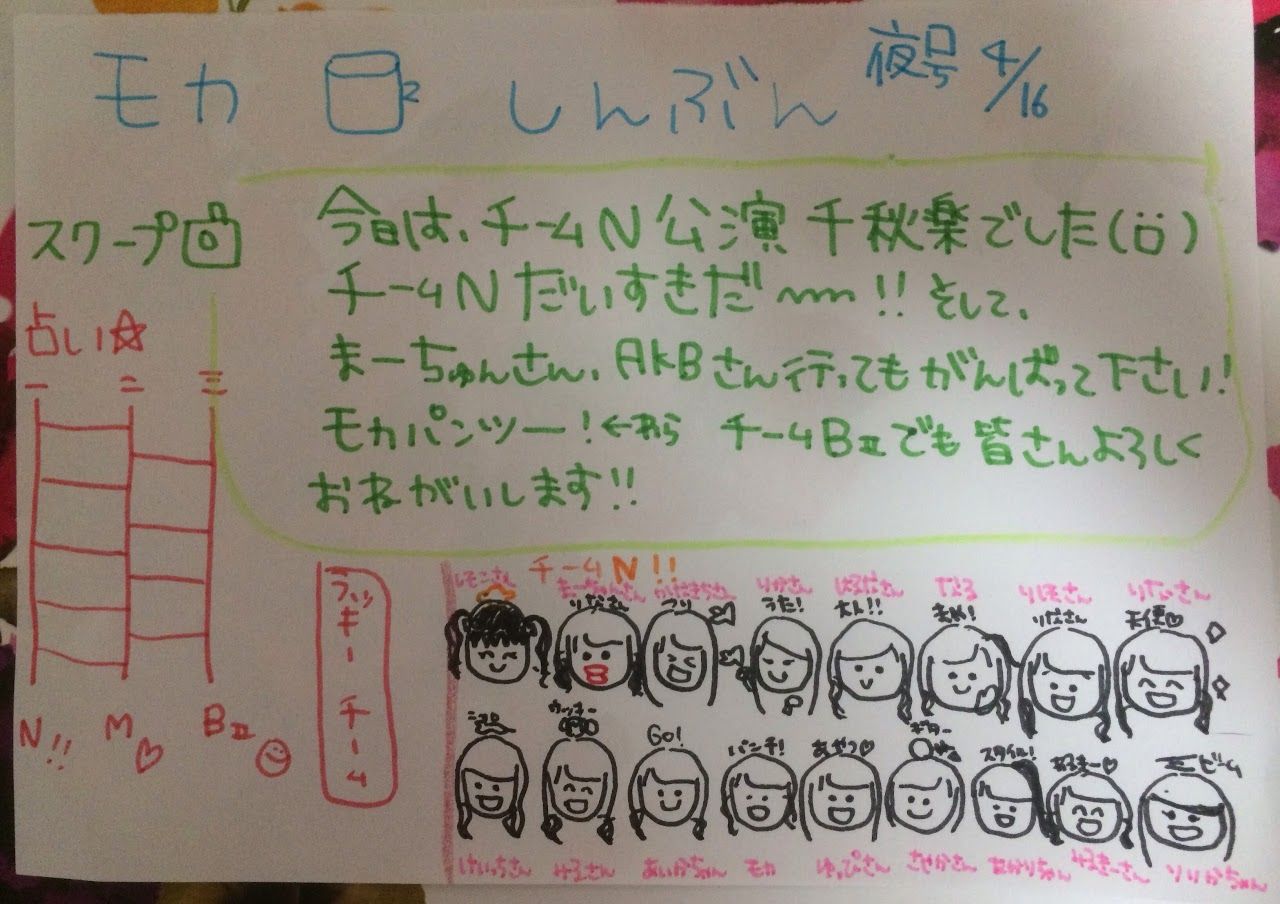 モカ しんぶん 夜号 4/16
スクープ
今日は、チームN公演 千秋楽でした(ü)
チームN だいすきだ〜〜!! そして、
まーちゅんさん、AKBさん行ってもがんばって下さい!
モカパンツー!← チームBⅡでも皆さんよろしく
おねがいします!!
占い☆
一 二 三
N!! M♡ BⅡ
ラッキーチーム
チームN!!
まーちゅんさん りかさん なる りほさん りぃさん
りなさん うた! りなさん 天使♡
GO! パンチ! あやつ♡ ギター スタイル! ビーム
けいっちさん みるさん あいかちゃん モカ ゆっぴさん さやかさん あかりちゃん みるきーさん りりかちゃん